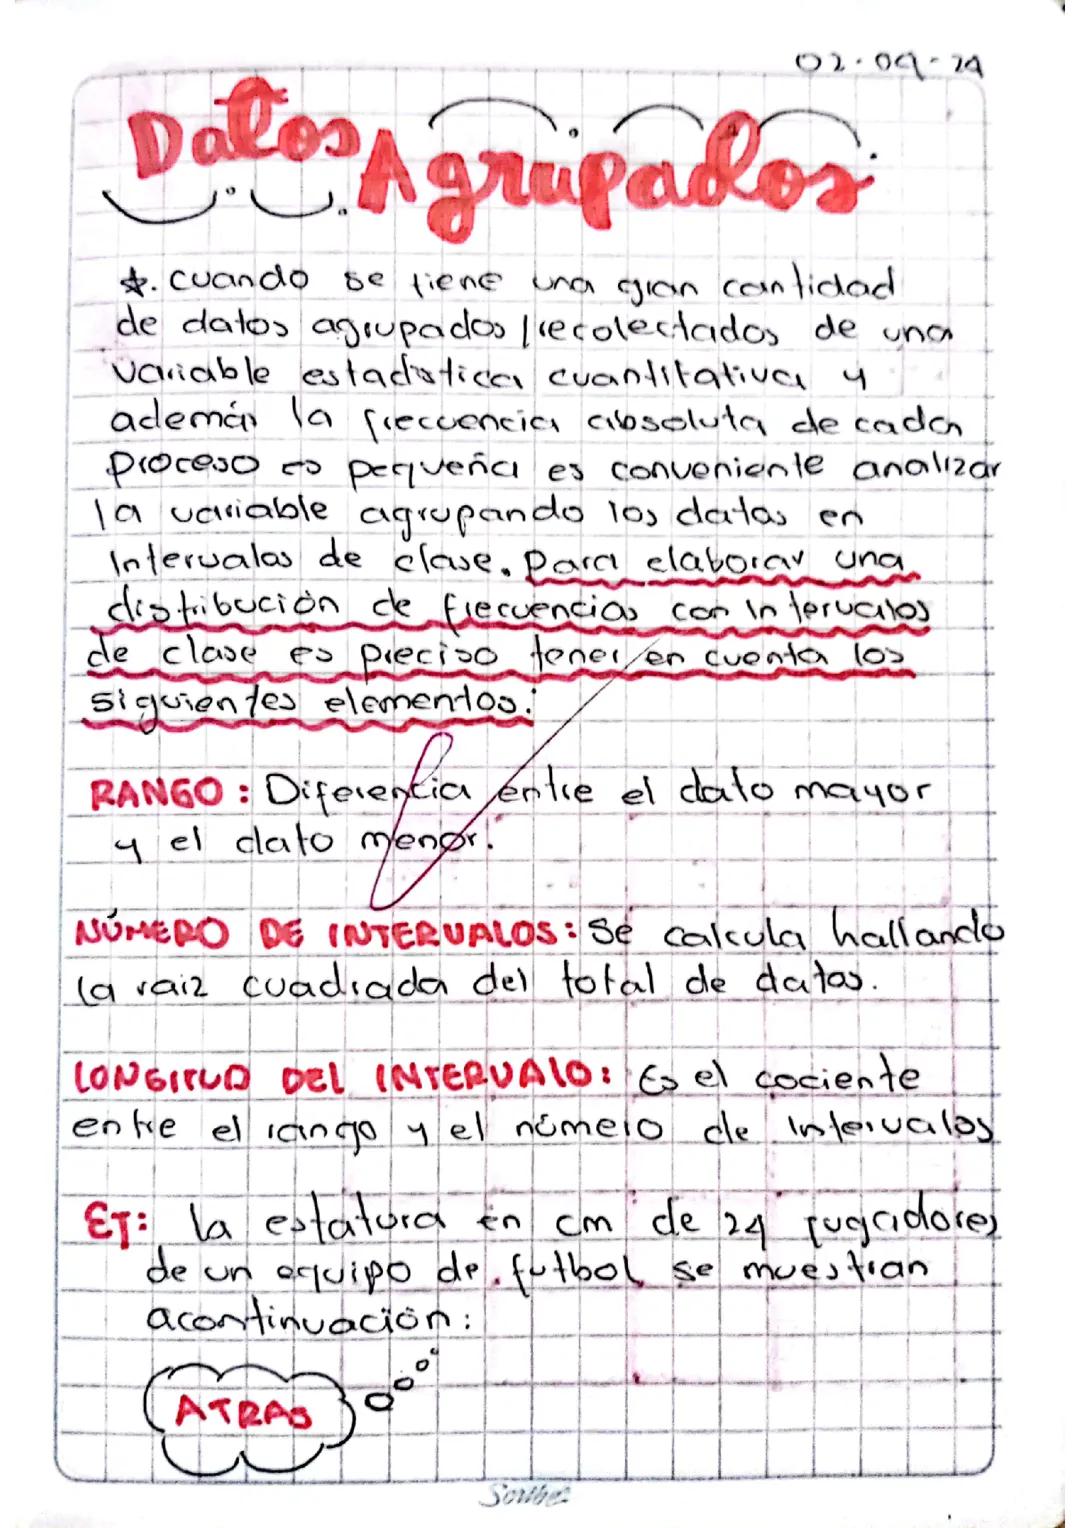 02-09-24
Datos Agrupados
☆. cuando se tiene una gran cantidad
de datos agrupados / recolectados de una
variable estadistica cuantitativa y
además la frecuencia absoluta de cada
proceso es pequeña es conveniente analizar
la variable agrupando los datos en
Intervalos de clase. Para elaborar una
distribución de frecuencias con Intervalos
de clase es preciso tener en cuenta los
siguientes elementos:
RANGO: Diferencia entre el dato mayor
y el dato menor.
NÚMERO DE INTERVALOS: Se calcula hallando
la raiz cuadrada del total de datos.
LONGITUD DEL INTERVALO: Es el cociente
entre el rango y el número de Intervalos
EJ: la estatura en cm de 24 jugadores
de un equipo de futbol se muestran
acontinuación:
ATRAS
Scribe